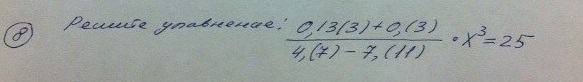 8 Решите уравнение: (0,13(3)+0,(3))/(4,(7)-7,(11)) • x³=25